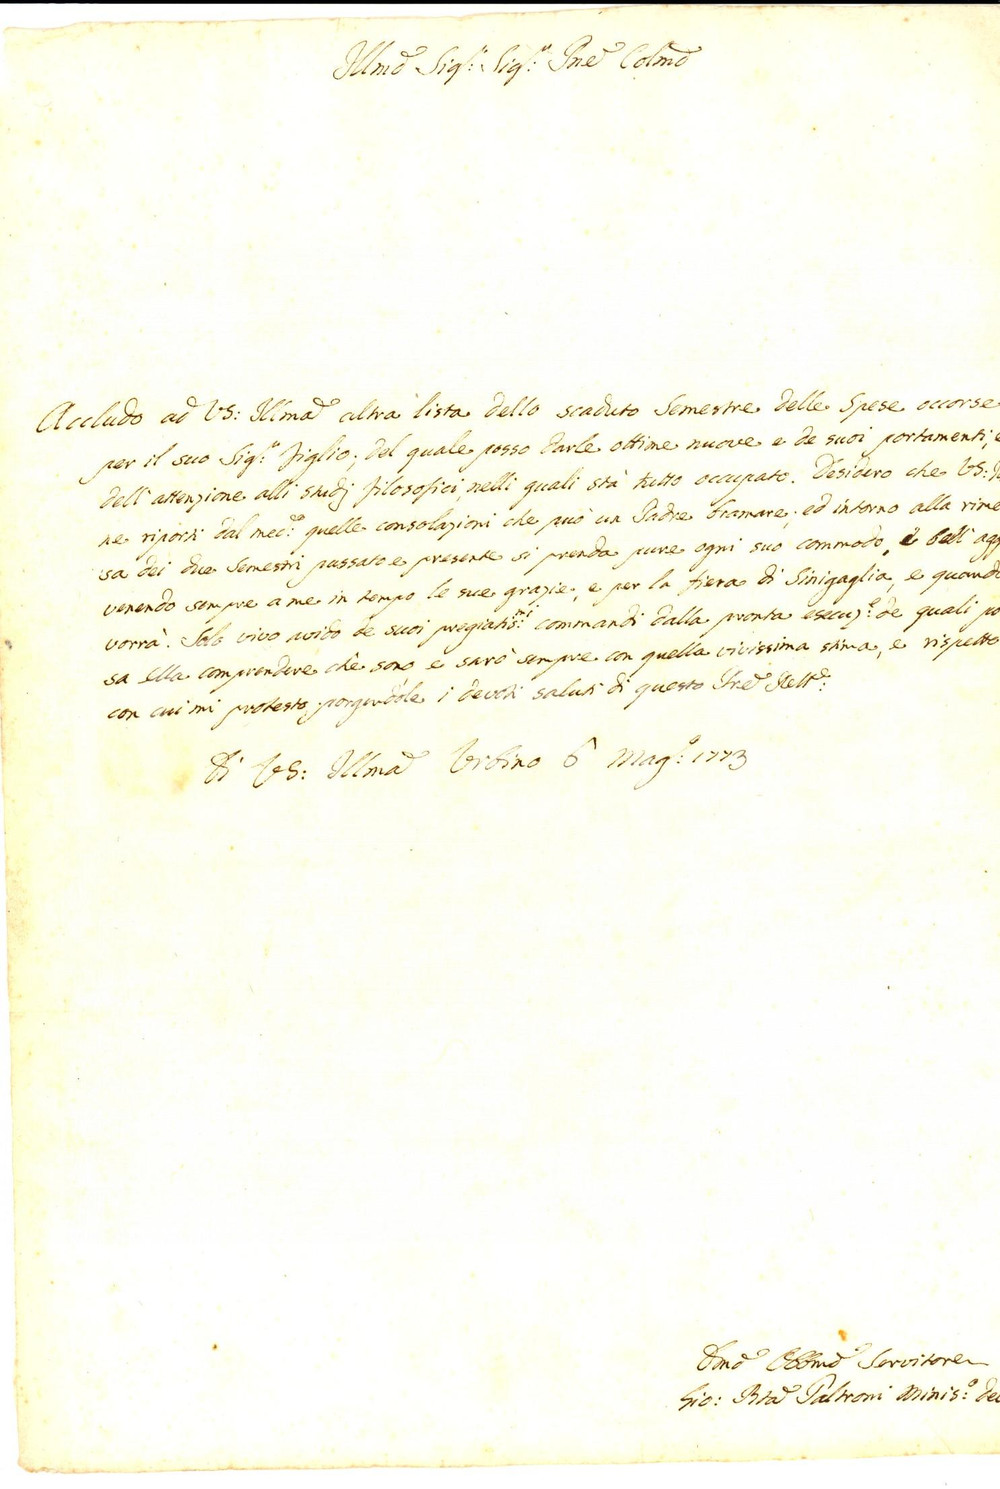 Illmo Sigr: Sigr: Pne Colmo
Accludo ad VS: Illma altra lista dello scaduto Semestre delle Spese occorse
per il suo Sigr: figlio; del quale posso darle ottime nuove e de suoi portamenti, e
dell' attenzione alli studj filosofici, nelli quali stà tutto occupato. Desidero che VS: Il
ne riporti dal medo: quelle consolazioni che può un Padre bramare; ed intorno alla rime
sa dei due Semestri passato e presente si prenda pure ogni suo commodo, è bell' agg
venendo sempre a me in tempo le sue grazie, e per la fiera di Sinigaglia, e quando
vorrà. Solo vivo avido de suoi pregiatismi: commandi dalla pronta esecuzo: de quali po
sa ella comprendere che sono e sarò sempre con quella vivissima stima, e rispetto
con cui mi protesto, porgendole i devoti saluti di questo Pre Rettr:
Di VS: Illma Urbino 6 Mago: 1773
Dmo Obbmo Servitore
Gio: Bta Paltroni Miniso: del